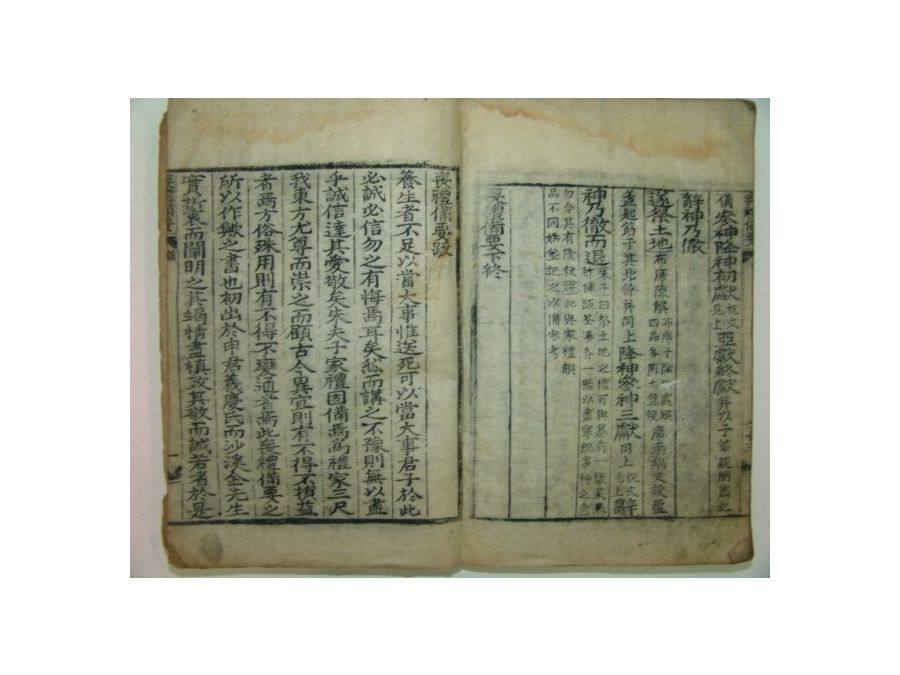 儀參神降神初獻祝文見上亞獻終獻幷以子弟親朋爲之
辭神乃徹
遂祭土地布席陳饌
盞匙筯于其北餘幷同上降神參神三獻同上辭
神乃徹而退朱子曰祭土地之禮可與墓前一㨾菜果
勿令其有隆殺
品不同姑並記之以備參考
喪禮備要下終
喪禮備要跋
養生者不足以當大事惟送死可以當大事君子於此
必誠必信勿之有悔焉耳矣然而講之不豫則無以盡
乎誠信達其愛敬矣朱夫子家禮因備焉爲禮家三尺
我東方尤尊而崇之而顧古今異宜則有不得不損益
者焉方俗殊用則有不得不變通者焉此喪禮備要之
所以作歟之書也初出於申君義慶氏而沙溪金先生
實折衷而闡明之其竭情盡愼致其敬而誠若者於是